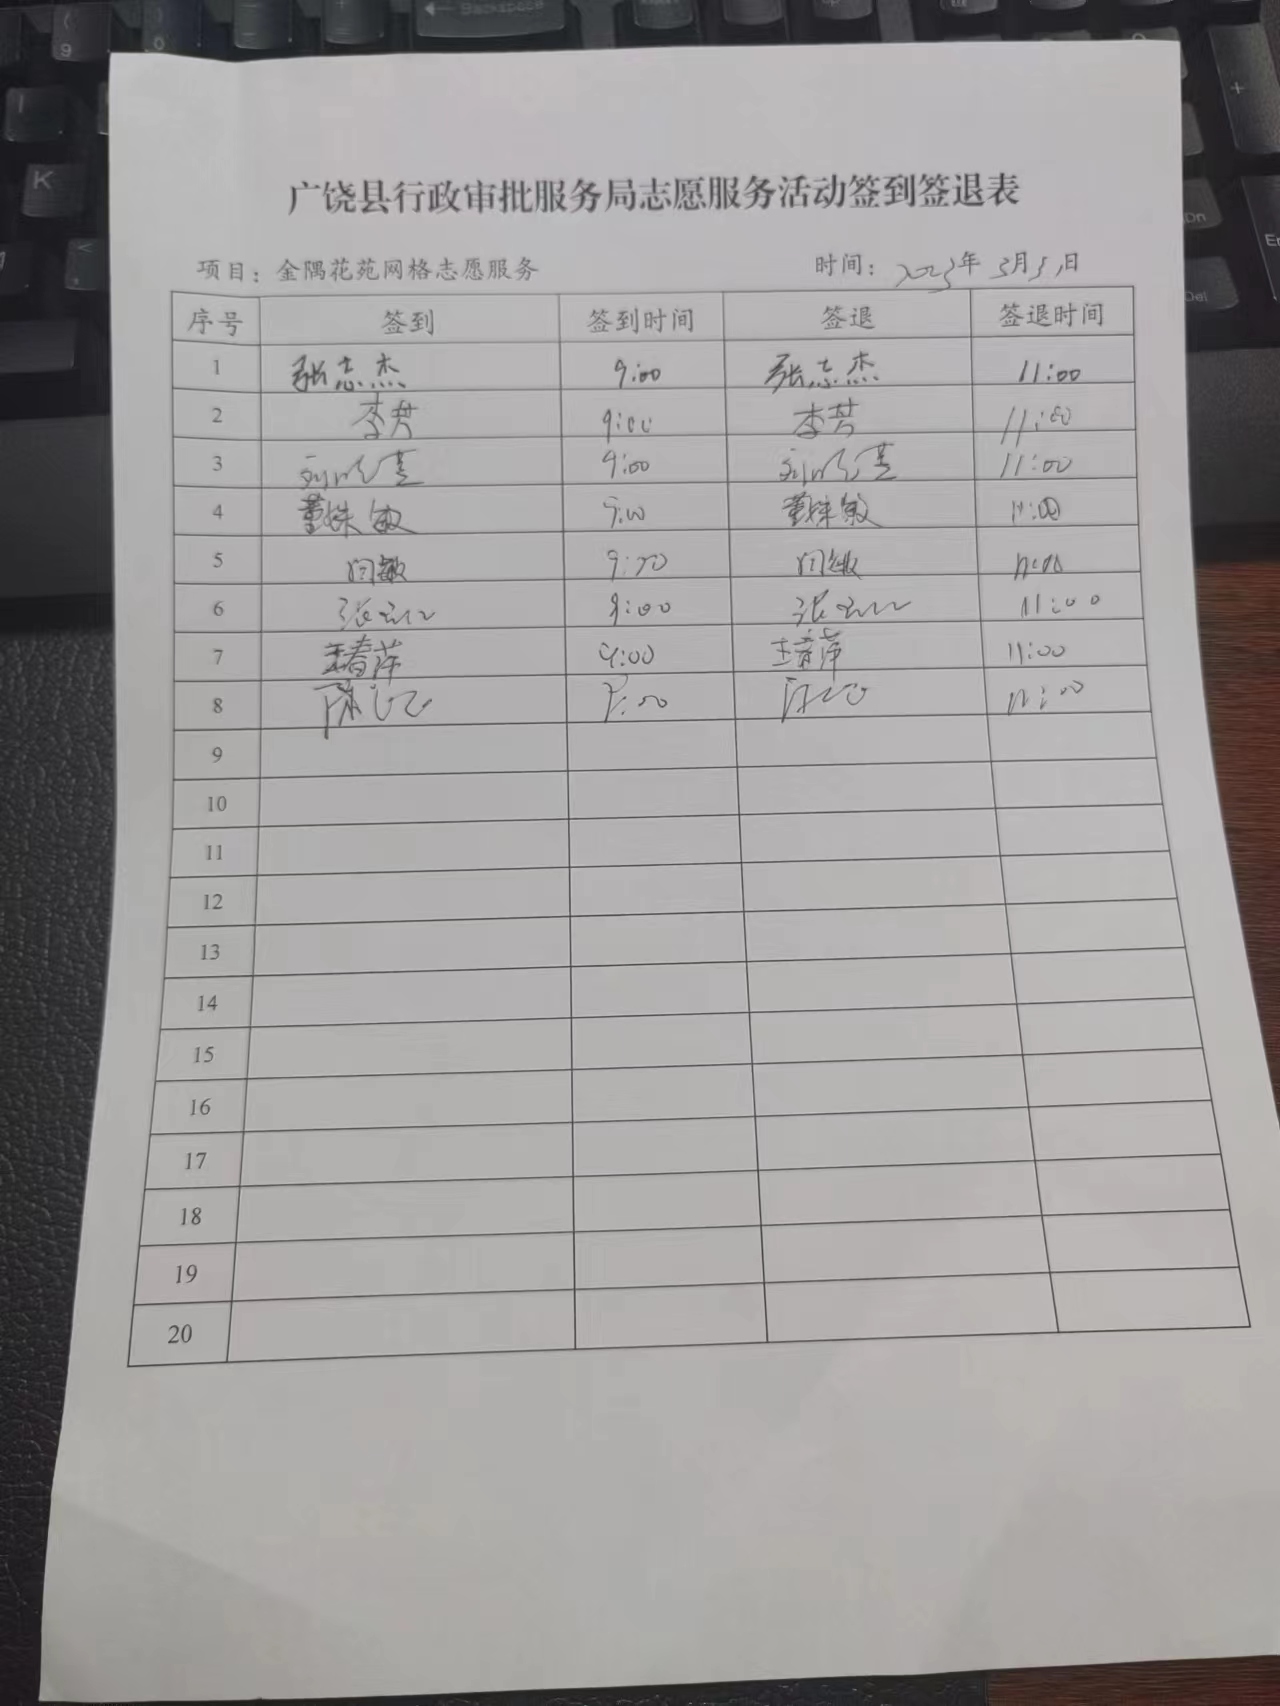 广饶县行政审批服务局志愿服务活动签到签退表
项目：金隅花苑网格志愿服务 时间：2023年3月31日
序号 签到 签到时间 签退 签退时间
1 张志杰 9:00 张志杰 11:00
2 李芳 9:00 李芳 11:00
3 9:00 11:00
4 董姝敏 9:00 董姝敏 11:00
5 闫敏 9:00 闫敏 11:00
6 张 9:00 张 11:00
7 王春萍 9:00 王春萍 11:00
8 9:00 11:00
9
10
11
12
13
14
15
16
17
18
19
20